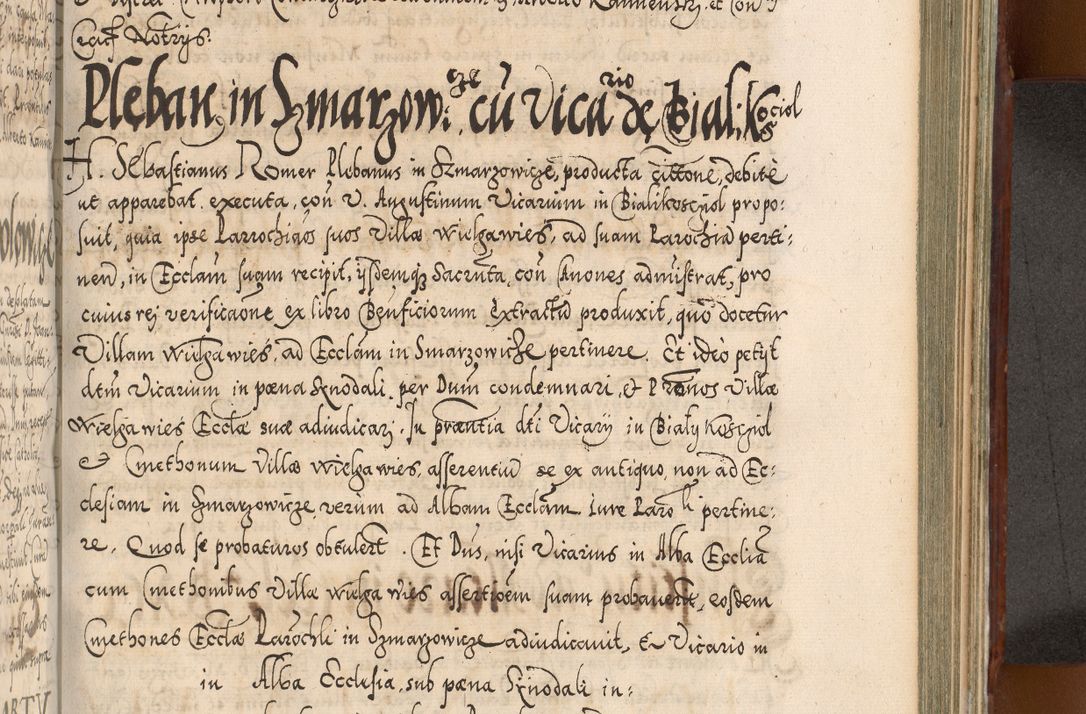 Cracˢ Notrijs:
Pleban, in Szmarzow:cze cū Vicario de Bial:Kosciol
H. Sebastianus Romer Plebanus in Szmarzowicze, producta Cittone, debite
ut apparebat executa, con V. Augustinum Vicarium in Bialikosczyol propo:
suit, quia ipse Parrochiaos suos Villæ Wielgawies, ad suam Parochia perti:
nen, in Ecclam suam recipit, ijsdemq3 Sacrūta, con Knones admistrat, pro
cuius rej verificaone ex libro Beneficiorum extractū produxit, quo docetur
Villam Wielgawies, ad Ecclam in Smarzowicze pertinere. Et ideo petijt
dtm Vicarium in pæna synodali per Dum condemnari, et Pronos Villæ
Wielga wies Ecclæ suæ adiudicarj. In præntia dti Vicarij in Biały Kosczyol
et Cmethonum Villæ Wielga wies, asserentiū se ex antiquo, non ad Ec:
clesiam in Szmarzowicze, verum ad Albam Ecclam Iure Paroli pertine:
re. Quod se probaturos obtulert. Et Dus, nisi Vicarius in Alba Ecclia
cum Cmethonibus Villæ Wielga wies assertioem suam probauerit, eosdem
Cmethones Ecclæ Parochli in Szmarzowicze adiudicauit, et Vicario in
in Alba Ecclesia, sub pæna Synodali in: